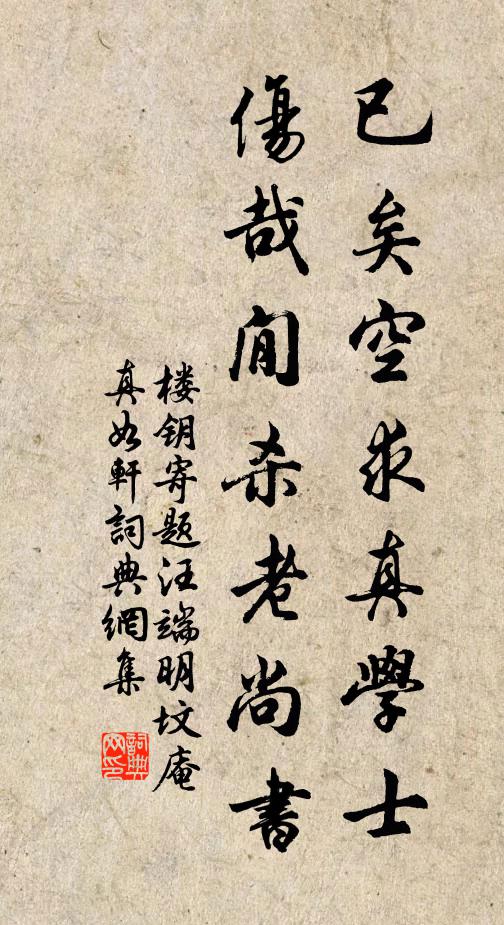 已矣空求真學士
傷哉閒杀老尚書
楼钥寄题汪端明坟庵
真如軒詞典網集
詞典网印